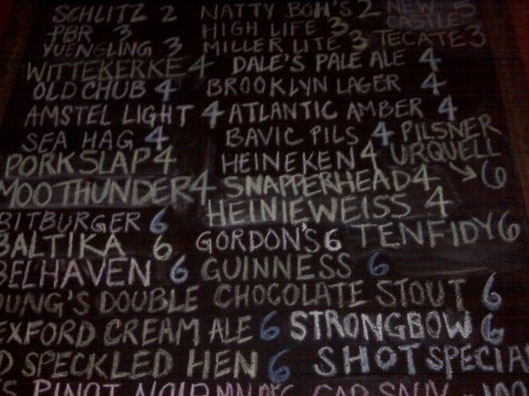 SCHLITZ 2 NATTY BOH'S 2 NEW
CASTLE 5
PBR 3 HIGH LIFE 3
YUENGLING 3 MILLER LITE 3 TECATE 3
WITTEKERKE 4 DALE'S PALE ALE 4
OLD CHUB 4 BROOKLYN LAGER 4
AMSTEL LIGHT 4 ATLANTIC AMBER 4
SEA HAG 4 BAVIC PILS 4 PILSNER
URQUELL 6
PORKSLAP 4 HEINEKEN 4
MOOTHUNDER 4 SNAPPERHEAD 4
HEINIEWEISS 4
BITBURGER 6
BALTIKA 6 GORDON'S 6 TENFIDY 6
BELHAVEN 6 GUINNESS 6
OUNG'S DOUBLE CHOCOLATE STOUT 6
EXFORD CREAM ALE 6 STRONGBOW 6
D SPECKLED HEN 6 SHOT SPECIA
PINOT NOIR CAB SAUV